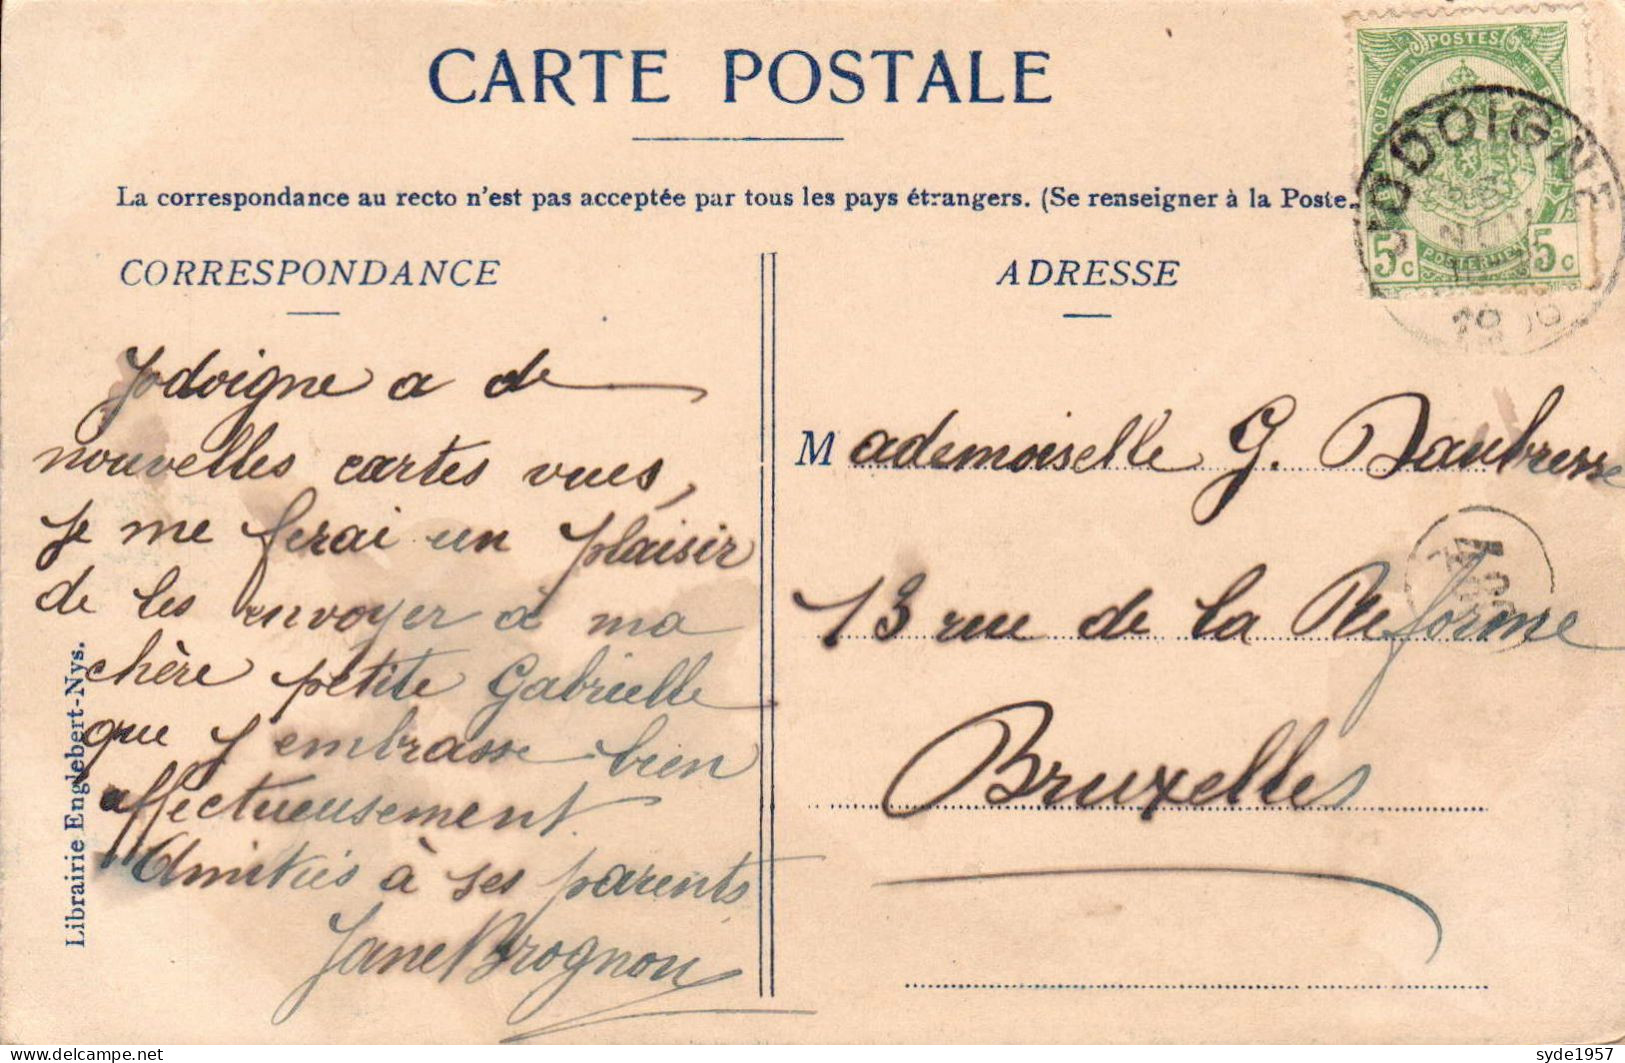 CARTE POSTALE
La correspondance au recto n'est pas acceptée par tous les pays étrangers. (Se renseigner à la Poste.
CORRESPONDANCE
Jodoigne a de
nouvelles cartes vues,
je me ferai un plaisir
de les envoyer à ma
chère petite Gabrielle
que j'embrasse bien
affectueusement
Amitiés à ses parents
Jane Brognon
Librairie Englebert-Nys.
ADRESSE
Mademoiselle G. Daubresse
13 rue de la Reforme
Bruxelles
POSTES
5c 5c
JODOIGNE
syde1957